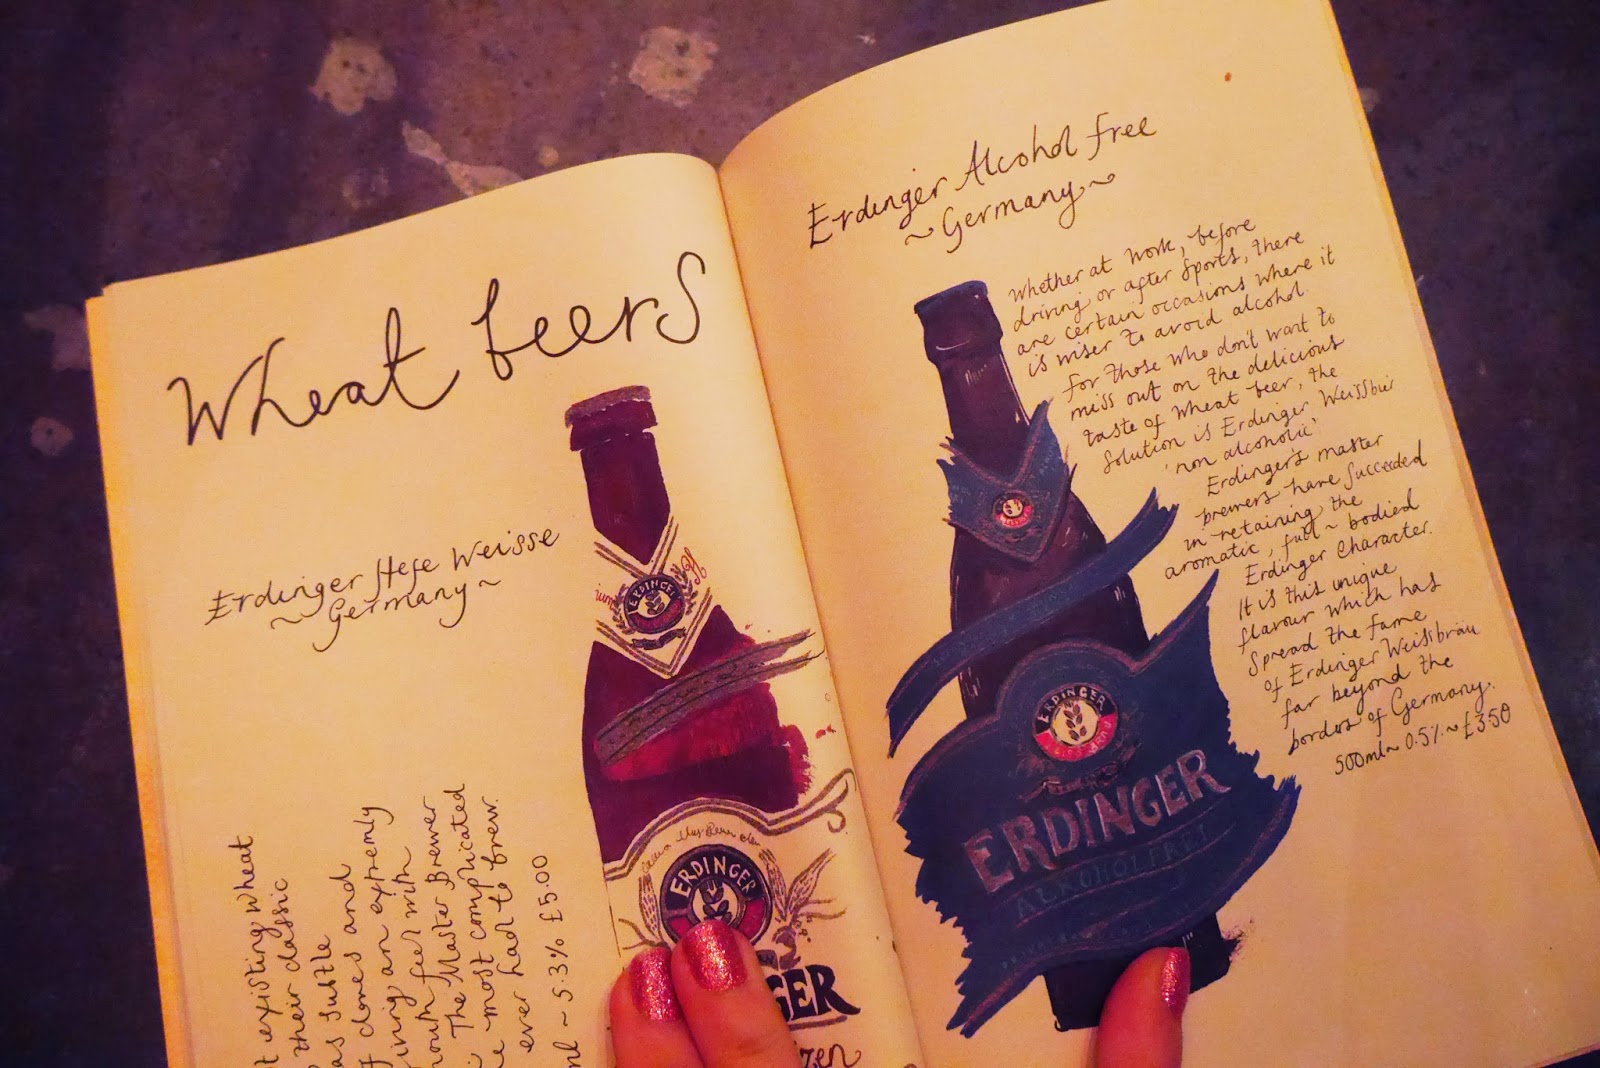 Wheat beers
Erdinger Hefe Weisse
~ Germany ~
ERDINGER
ERDINGER
GER
existing wheat
their classic
as subtle
f cloves and
ing an extremly
mouth feel with
The Master Brewer
e most complicated
ever had to brew.
ml ~ 5.3% £5.00
Erdinger Alcohol free
~ Germany ~
Whether at work, before
driving or after sports, there
are certain occasions where it
is wiser to avoid alcohol.
For those who don't want to
miss out on the delicious
taste of wheat beer, the
solution is Erdinger Weissbier
'non alcoholic'
Erdinger's master
brewers have succeeded
in retaining the
aromatic, full ~ bodied
Erdinger character.
It is this unique
flavour which has
spread the fame
of Erdinger Weissbräu
far beyond the
bordors of Germany.
500ml ~ 0.5% ~ £3.50
ERDINGER
ERDINGER
ALKOHOLFREI